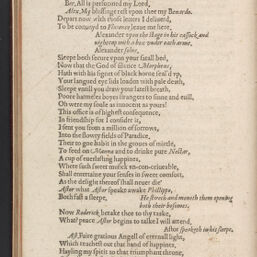 Ber, All is supported my Lord,
Alex. My blessings rest vpon thee my Bernardo.
Depart now with those letters I deliuerd,
To be conuayd to Florence leaue me here,
Alexander vpon the stage in his cassock and
nightcap with a box vnder each arme.
Alexander solus,
Sleepe both secure vpon your fatall bed,
Now that the God of silence Morpheus,
Hath with his signet of black horne seal'd vp,
Your langued eye lids loden with pale death,
Sleepe vntill you draw your latest breath,
Poore harmeles boyes strangers to sinne and euill,
Oh were my soule as innocent as yours!
This office is of highest consequence,
In friendship for I consider it,
I sent you from a million of sorrows,
Into the flowry fields of Paradice,
There to goe habit in the groues of mirtle,
To feed on Manna and to drinke pure Nectar,
A cup of euerlasting happines,
Where such sweet musick
Shall entertaine your senses in sweet comfort,
As the delight thereof shall neuer die
After what Astor speaks awake Phillippo,
Both fast a sleepe, He and them opening
both their bosomes.
Now Roderick betake thee to thy taske,
What? peace Astor begins to talke I will attend,
Astor speaketh in his sleepe.
Ast. Faire gratious Angell of eternall light,
Which reacheth out that hand of happines,
Hayling my spirit to that triumphant throne,